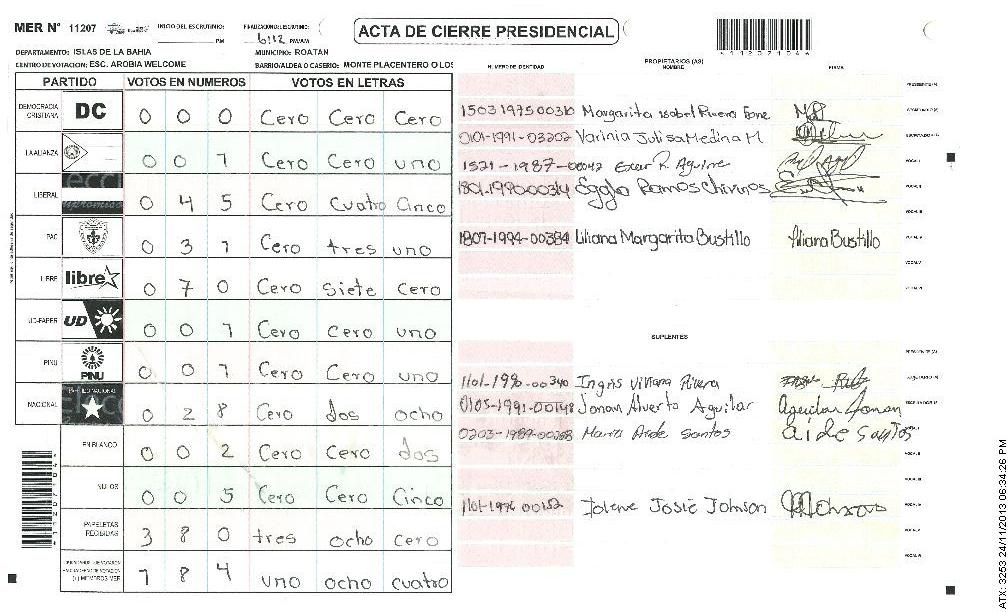 MER N° 11207 INICIO DEL ESCRUTINIO: PM FINALIZACION ESCRUTINIO: 6:12 PM/AM
ACTA DE CIERRE PRESIDENCIAL
DEPARTAMENTO: ISLAS DE LA BAHIA MUNICIPIO: ROATAN
CENTRO DE VOTACION: ESC. AROBIA WELCOME BARRIO/ALDEA O CASERIO: MONTE PLACENTERO O LOS
PARTIDO VOTOS EN NUMEROS VOTOS EN LETRAS
DEMOCRACIA CRISTIANA DC 0 0 0 Cero Cero Cero
LA ALIANZA 0 0 1 Cero Cero uno
LIBERAL 0 4 5 Cero Cuatro Cinco
PAC 0 3 1 Cero tres uno
LIBRE libre 0 7 0 Cero Siete Cero
UD-FAPER UD 0 0 1 Cero cero uno
PINU PINU 0 0 1 Cero Cero uno
NACIONAL 0 2 8 Cero dos ocho
EN BLANCO 0 0 2 Cero Cero dos
NULOS 0 0 5 Cero Cero Cinco
PAPELETAS RECIBIDAS 3 8 0 tres ocho cero
(+) MIEMBROS MER 1 8 4 uno ocho cuatro
PROPIETARIOS (AS)
NUMERO DE IDENTIDAD NOMBRE FIRMA
1503197500310 Margarita Isabel Rivera
0101-1991-03202 Varinia Julisa Medina M
1521-1987-00042 Escar R. Aguirre
1801-1990-00314 Ramos
1807-1994-00384 Liliana Margarita Bustillo Liliana Bustillo
SUPLENTES
1101-1990-00340 Ingris Viviana Rivera
0105-1991-00148 Jonan Alverto Aguilar Aguilar Jonan
0203-1989-00288 Maria Aide Santos aide santos
1101-1996 00152 Jolene Josie Johnson
ATX: 3253 24/11/2013 06:34:26 PM